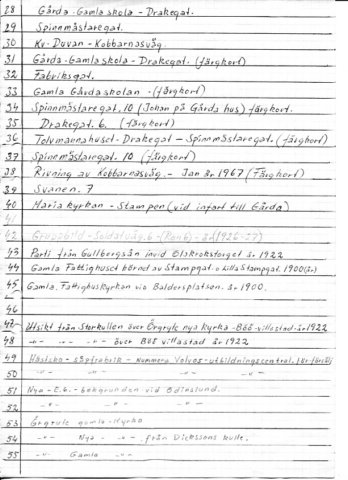 28 Gårda-Gamla skola - Drakegat.
29 Spinnmästaregat.
30 Kv. Duvan - Kobbarnasväg.
31 Gårda-Gamla skola - Drakegat. (färgkort)
32 Fabriksgat.
33 Gamla Gårdaskolan - (färgkort)
34 Spinnmästaregat. 10 (Johan på Gårda hus) färgkort.
35 Drakegat. 6. (färgkort)
36 Tolvmannahuset - Drakegat - Spinnmästaregat. (färgkort)
37 Spinnmästaregat. 10 (färgkort)
38 Rivning av Kobbarnasväg. - Jan år 1967 (Färgkort)
39 Svanen. 7
40 Mariakyrkan - Stampen (vid infart till Gårda)
41
42 Gruppbild - Soldatväg. 6 -
43 Parti från Gullbergsån invid Elskrokstorget år 1922
44 Gamla Fattighuset hörnet av Stampgat. o Lilla Stampgat. 1900 (år)
45 Gamla Fattighuskyrkan via Baldersplatsen. år 1900.
46
47 Utsikt från Storkullen över Örgryte nya kyrka - Böö villastad - år 1922
48 -"- -"- -"- över Böö villastad år 1922
49 Hästsko - söm fabrik - nummera Volvos - utbildningscentral.
50 -"- -"- -"-
51 Nya - E.6. - bakgrunden vid Ödinslund.
52 -"- -"- -"-
53 Örgryte gamla - Kyrka
54 -"- Nya -"- från Dicksons kulle.
55 -"- Gamla -"-